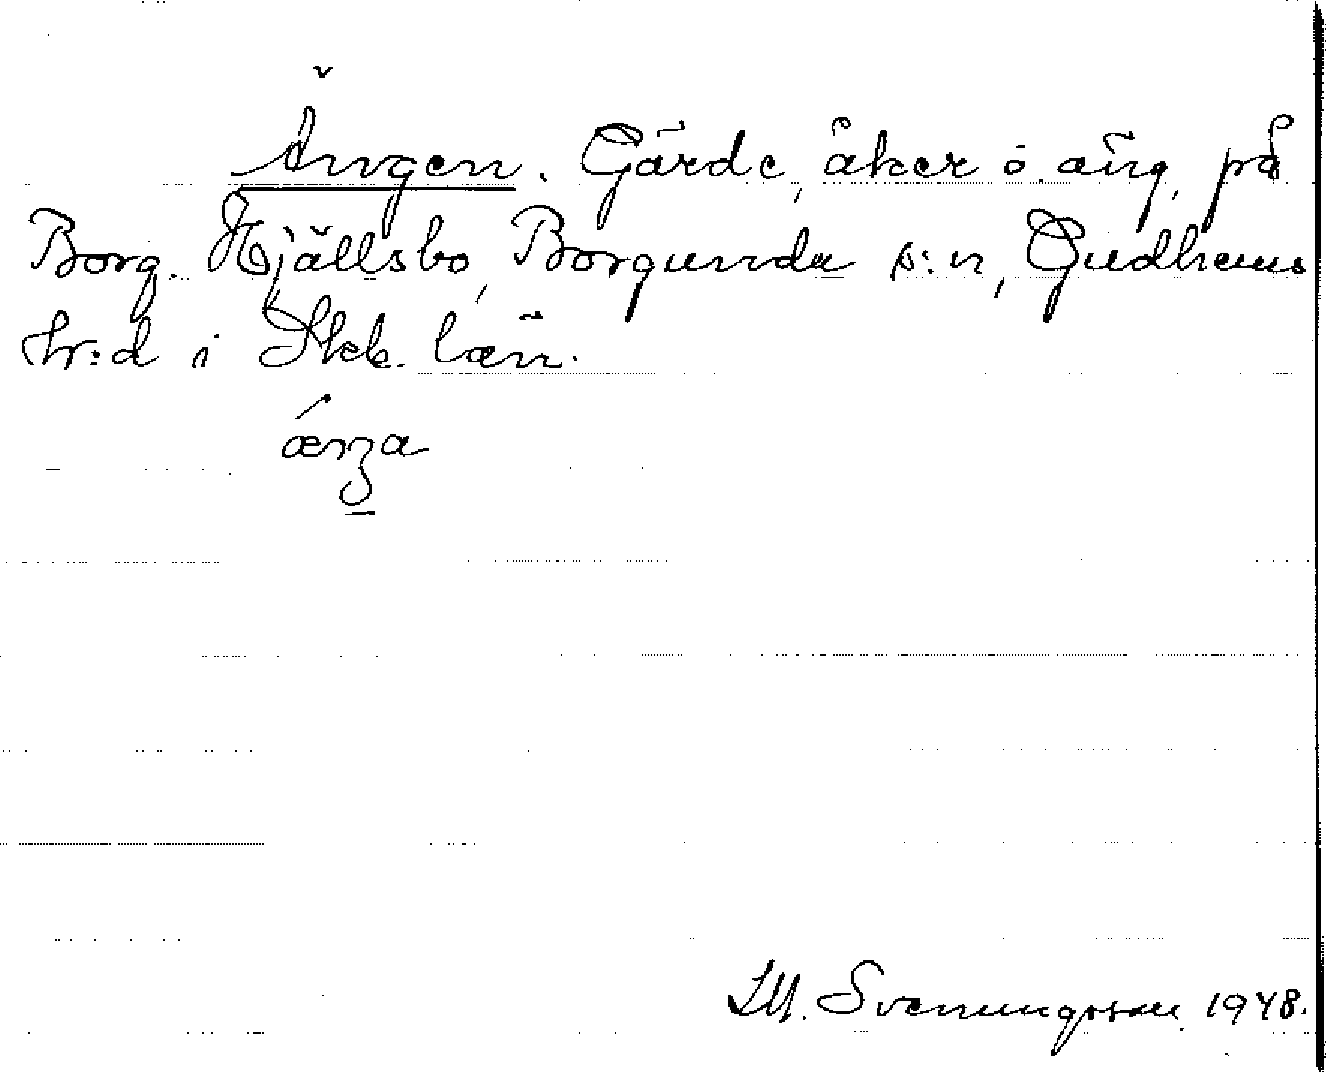 Ängen. Gärde, åker o. äng, på
Borg. Kjällsbo, Borgunda s:n, Gudhems
hr:d i Skb. län.
ǽŋa
M. Svenungsson 1948.